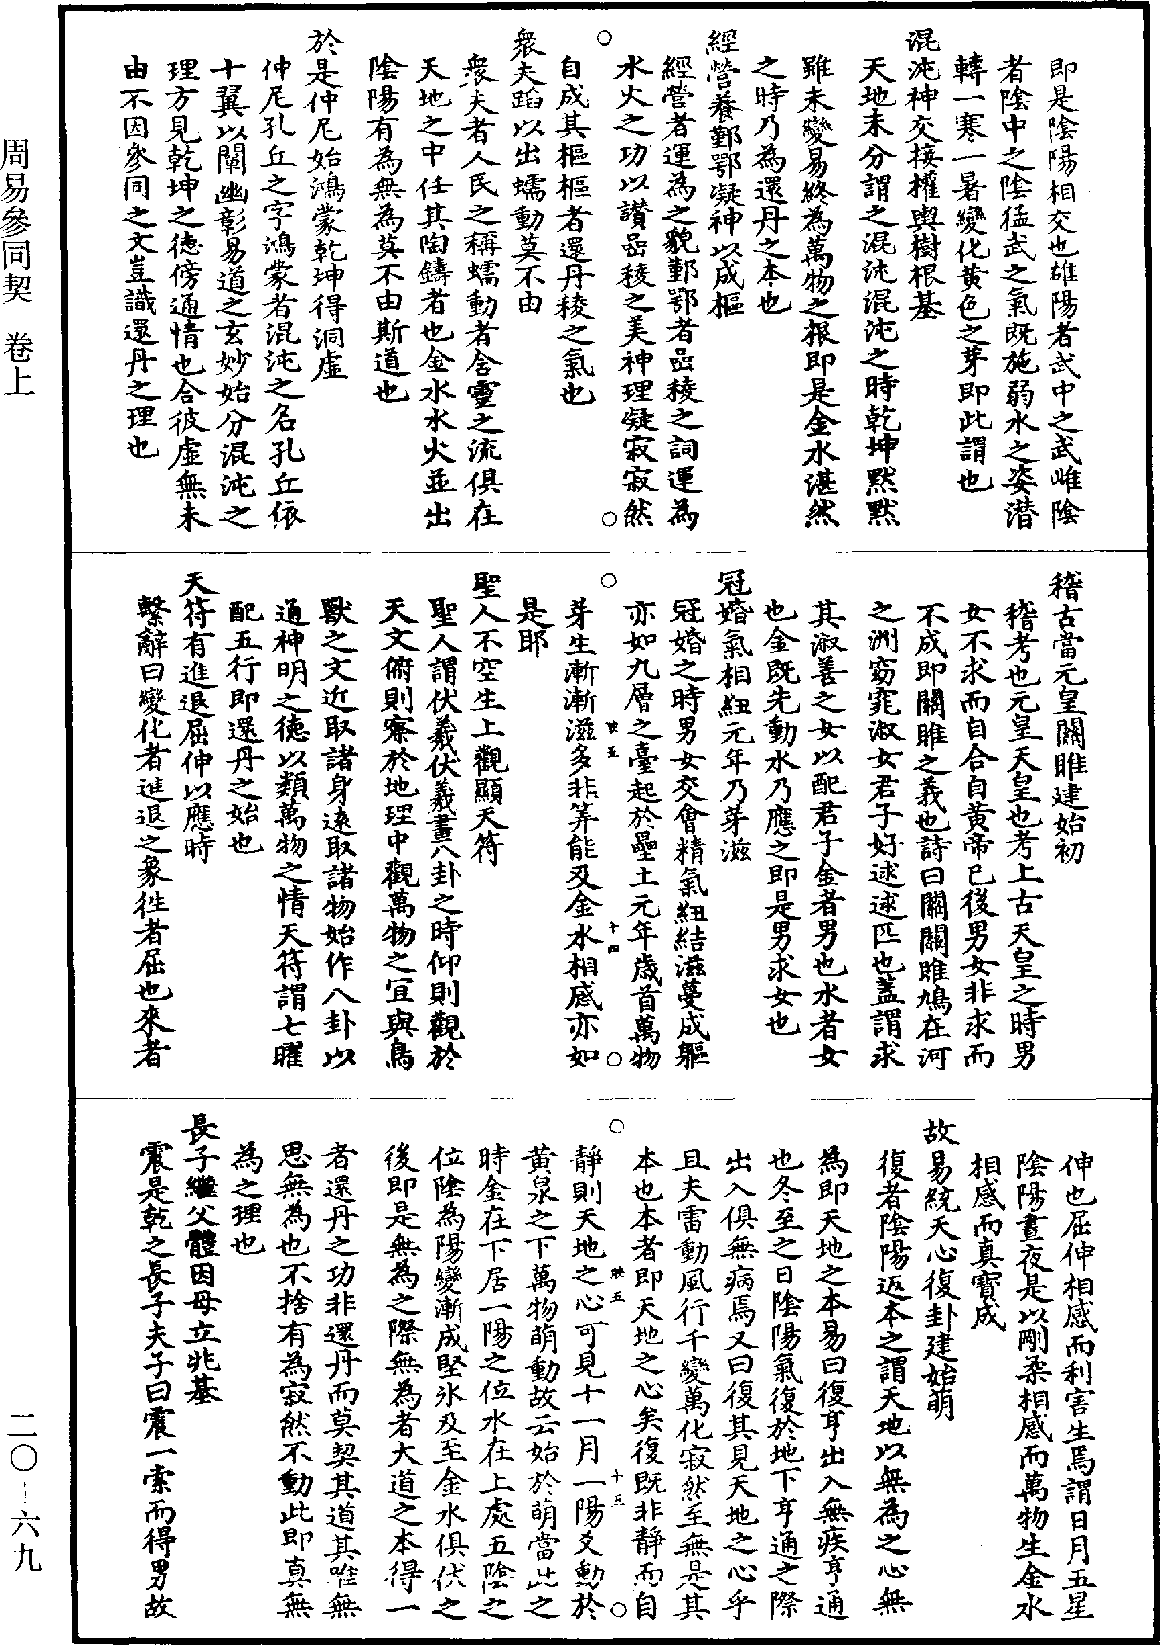 即是陰陽相交也雄陽者武中之武雌陰
者陰中之陰猛武之氣既施弱水之姿潛
轉一寒一暑變化黃色之芽即此謂也
混沌神交接權輿樹根基
天地未分謂之混沌混沌之時乾坤默默
雖未變易終為萬物之根即是金水湛然
之時乃為還丹之本也
經營養鄞鄂凝神以成樞
經營者運為之貌鄞鄂者嵒稜之詞運為
水火之功以讚嵒稜之美神理凝寂寂然
自成其樞樞者還丹稜之氣也
衆夫蹈以出蠕動莫不由
衆夫者人民之稱蠕動者含靈之流俱在
天地之中任其陶鑄者也金水水火並出
陰陽有為無為莫不由斯道也
於是仲尼始鴻蒙乾坤得洞虛
仲尼孔丘之字鴻蒙者混沌之名孔丘依
十翼以闡幽彰易道之玄妙始分混沌之
理方見乾坤之德傍通情也合彼虛無未
由不因參同之文豈識還丹之理也
稽古當元皇關雎建始初
稽考也元皇天皇也考上古天皇之時男
女不求而自合自黃帝已後男女非求而
不成即關雎之義也詩曰關關雎鳩在河
之洲窈窕淑女君子好逑逑匹也蓋謂求
其淑善之女以配君子金者男也水者女
也金既先動水乃應之即是男求女也
冠婚氣相紐元年乃芽滋
冠婚之時男女交會精氣紐結滋蔓成軀
亦如九層之臺起於壘土元年歲首萬物
芽生漸漸滋多非筭能及金水相感亦如
是耶
聖人不空生上觀顯天符
聖人謂伏羲伏羲畫八卦之時仰則觀於
天文俯則察於地理中觀萬物之宜與鳥
獸之文近取諸身遠取諸物始作八卦以
通神明之德以類萬物之情天符謂七曜
配五行即還丹之始也
天符有進退屈伸以應時
繫辭曰變化者進退之象徃者屈也來者
伸也屈伸相感而利害生焉謂日月五星
陰陽晝夜是以剛柔相感而萬物生金水
相感而真寶成
故易統天心復卦建始萌
復者陰陽返本之謂天地以無為之心無
為即天地之本易曰復亨出入無疾亨通
也冬至之日陰陽氣復於地下亨通之際
出入俱無病焉又曰復其見天地之心乎
且夫雷動風行千變萬化寂然至無是其
本也本者即天地之心矣復既非靜而自
靜則天地之心可見十一月一陽爻動於
黃泉之下萬物萌動故云始於萌當此之
時金在下居一陽之位水在上處五陰之
位陰為陽變漸成堅氷及至金水俱伏之
後即是無為之際無為者大道之本得一
者還丹之功非還丹而莫契其道其唯無
思無為也不捨有為寂然不動此即真無
為之理也
長子繼父體因母立兆基
震是乾之長子夫子曰震一索而得男故
周易參同契　卷上
二〇-六九